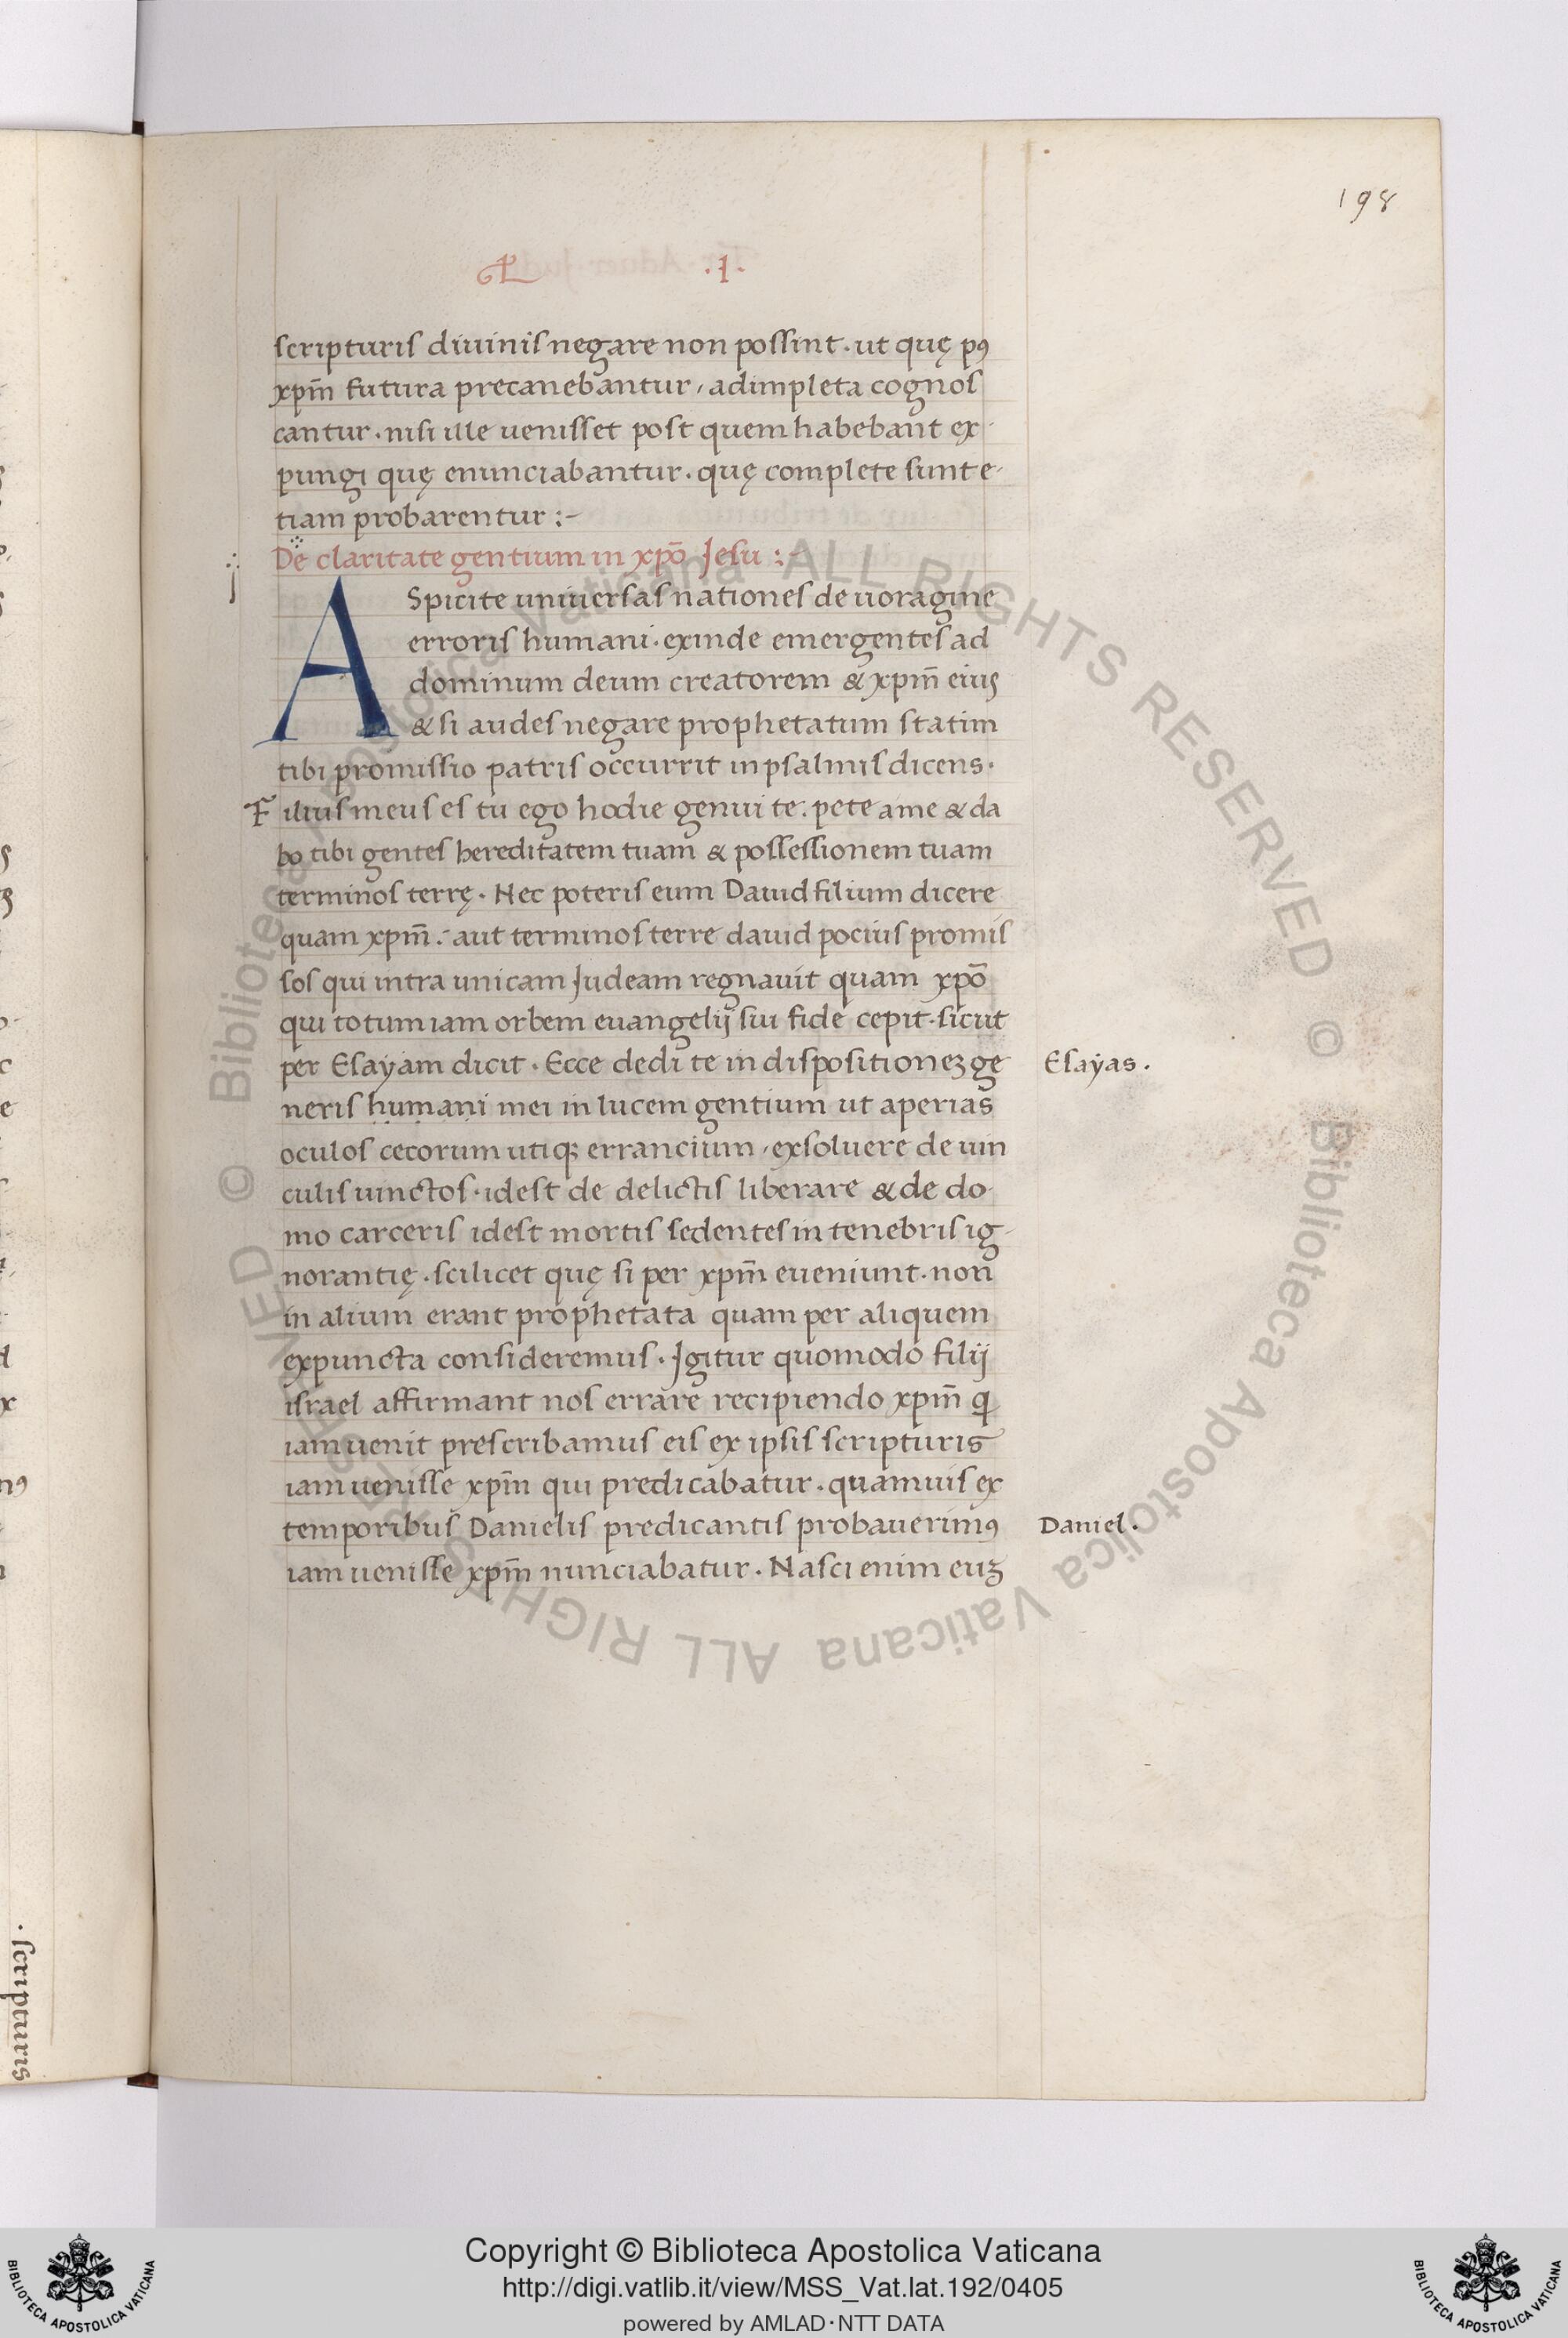 198
L .1.
scripturis diuinis negare non possint. ut quę pꝰ
xpm̄ futura precanebantur, adimpleta cognos
cantur. nisi ille uenisset post quem habebant ex-
pungi quę enunciabantur. quę complete sunt e-
tiam probarentur :-
De claritate gentium in xpō Jesu :-
ASpicite uniuersas nationes de uoragine
erroris humani. exinde emergentes ad
dominum deum creatorem & xpm̄ eius
& si audes negare prophetatum statim
tibi promissio patris occurrit in psalmis dicens.
Filius meus es tu ego hodie genui te. pete a me & da
bo tibi gentes hereditatem tuam & possessionem tuam
terminos terrę. Nec poteris eum Dauid filium dicere
quam xpm̄. aut terminos terre dauid pocius promis
sos qui intra unicam Judeam regnauit quam xpō
qui totum iam orbem euangelij sui fide cepit. sicut
per Esayam dicit. Ecce dedi te in dispositioneꝫ ge
neris humani mei in lucem gentium ut aperias
oculos cecorum utiqꝫ errancium, exsoluere de uin
culis uinctos. idest de delictis liberare & de do-
mo carceris idest mortis sedentes in tenebris ig-
norantię. scilicet quę si per xpm̄ eueniunt. non
in alium erant prophetata quam per aliquem
expuncta consideremus. Igitur quomodo filij
israel affirmant nos errare recipiendo xpm̄ q
iam uenit prescribamus eis ex ipsis scripturis
iam uenisse xpm̄ qui predicabatur. quamuis ex
temporibus Danielis predicantis probauerimꝰ
iam uenisse xpm̄ nunciabatur. Nasci enim euꝫ
Esayas.
Daniel.
. scripturis
© Biblioteca Apostolica Vaticana ALL RIGHTS RESERVED © Biblioteca Apostolica Vaticana ALL RIGHTS RESERVED
Copyright © Biblioteca Apostolica Vaticana
http://digi.vatlib.it/view/MSS_Vat.lat.192/0405
powered by AMLAD·NTT DATA
BIBLIOTECA APOSTOLICA VATICANA
BIBLIOTECA APOSTOLICA VATICANA